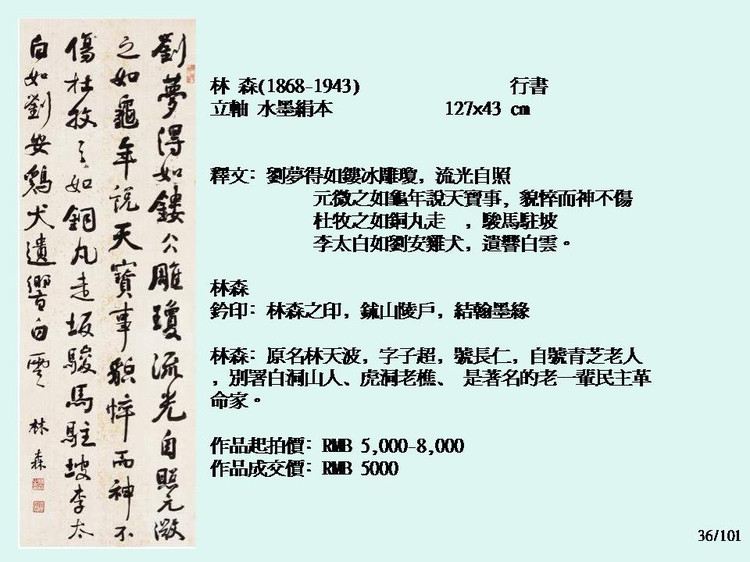 劉夢得如鏤冰雕瓊流光自照元微
之如龜年說天寶事貌悴而神不
傷杜牧之如銅丸走坂駿馬駐坡李太
白如劉安鷄犬遺響白雲
林森
林 森(1868-1943) 行書
立軸 水墨絹本 127x43 cm
釋文: 劉夢得如鏤冰雕瓊，流光自照
元微之如龜年說天寶事，貌悴而神不傷
杜牧之如銅丸走 ，駿馬駐坡
李太白如劉安雞犬，遺響白雲。
林森
鈐印: 林森之印，山陵戶，結翰墨緣
林森: 原名林天波，字子超，號長仁，自號青芝老人
，別署白洞山人、虎洞老樵、 是著名的老一輩民主革
命家。
作品起拍價: RMB 5,000-8,000
作品成交價: RMB 5000
36/101